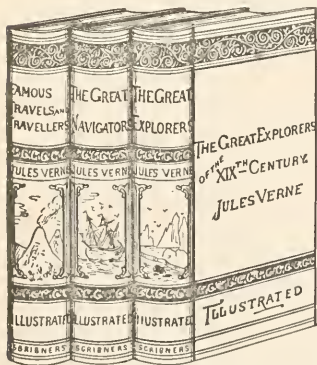 FAMOUS
TRAVELS AND
TRAVELLERS
JULES VERNE
ILLUSTRATED
SCRIBNERS
THE GREAT
NAVIGATORS
JULES VERNE
ILLUSTRATED
SCRIBNERS
THE GREAT
EXPLORERS
JULES VERNE
ILLUSTRATED
SCRIBNERS
THE GREAT EXPLORERS
OF THE XIXTH CENTURY.
JULES VERNE
ILLUSTRATED